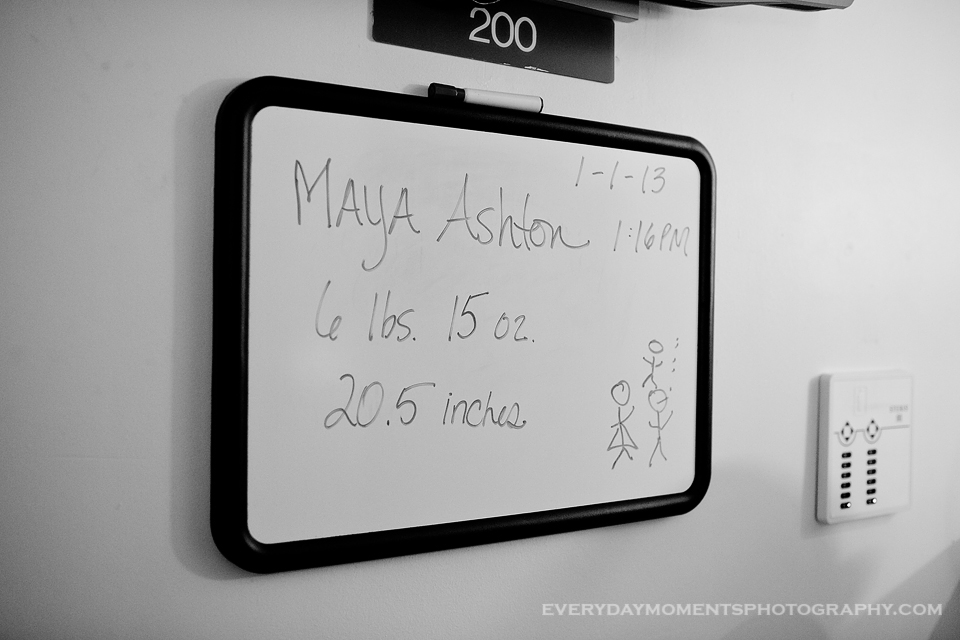 200
MAYA Ashton
1-1-13
1:16 PM
6 lbs. 15 oz.
20.5 inches
EVERYDAYMOMENTSPHOTOGRAPHY.COM